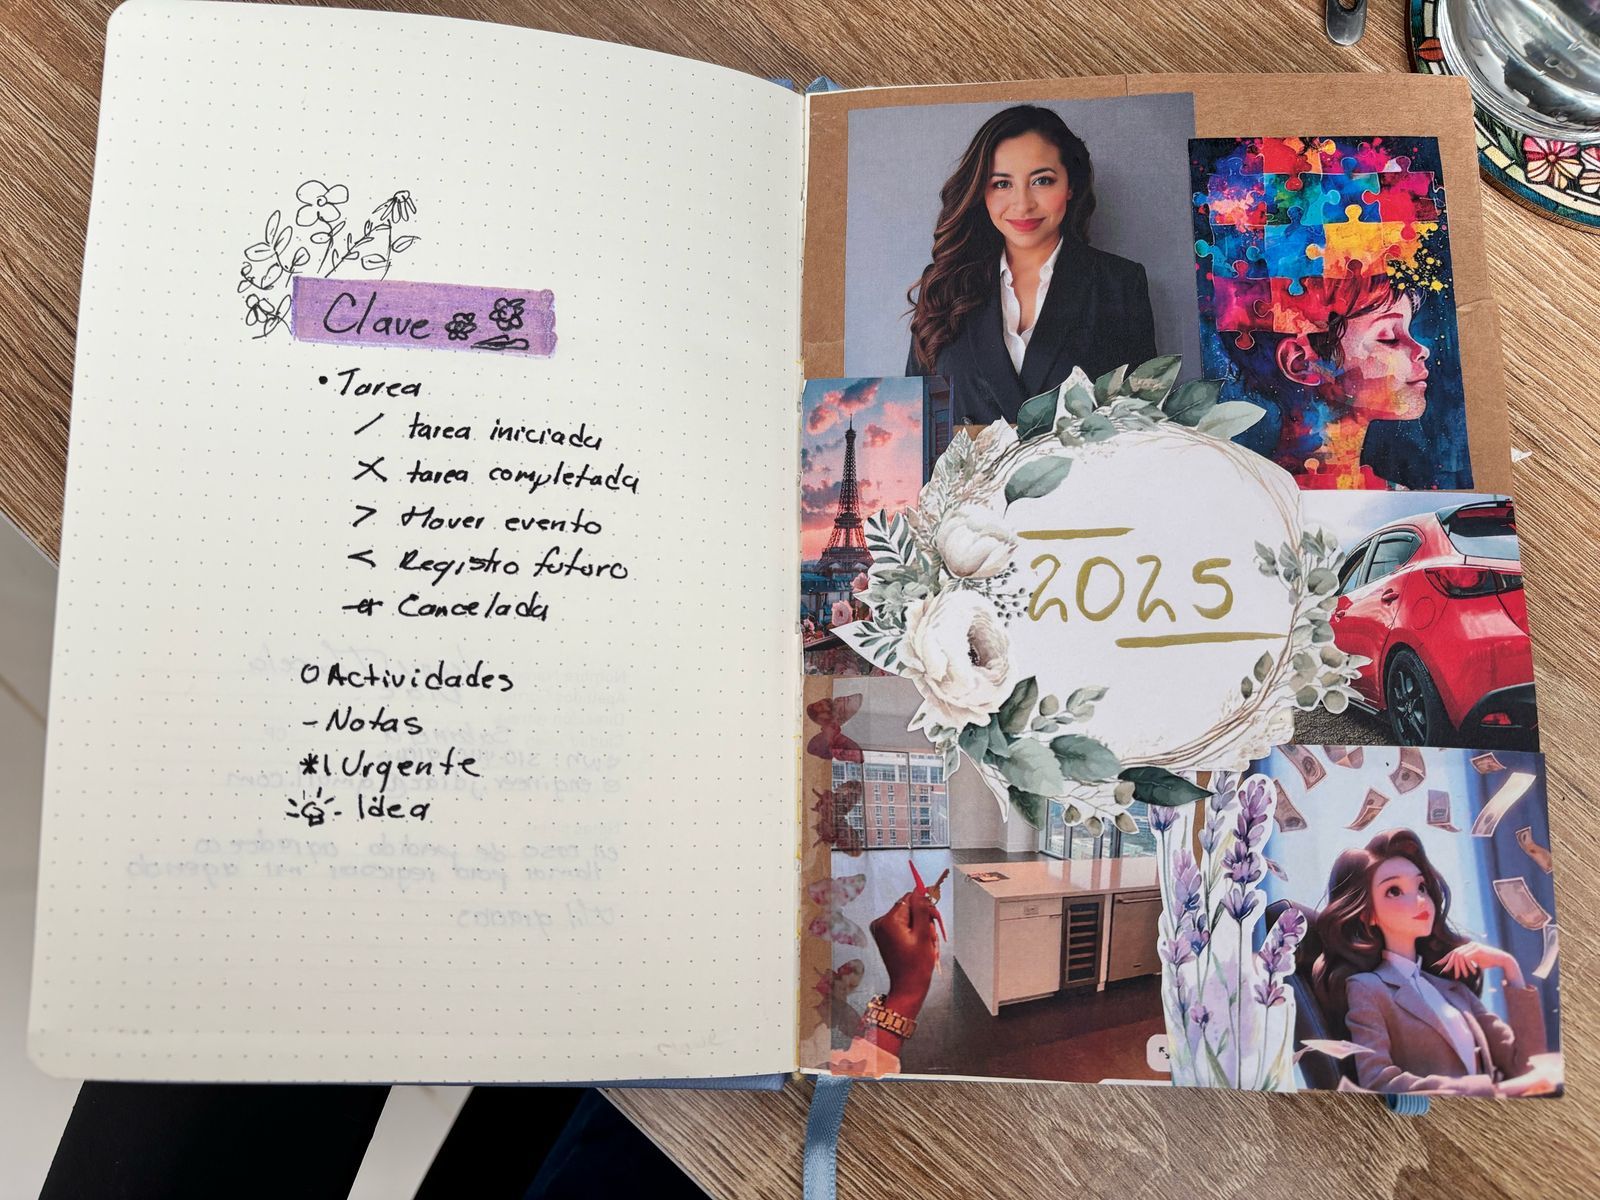 Clave
• Tarea
/ tarea iniciada
X tarea completada
> Mover evento
< Registro futuro
Cancelada
O Actividades
- Notas
*! Urgente
Idea
2025